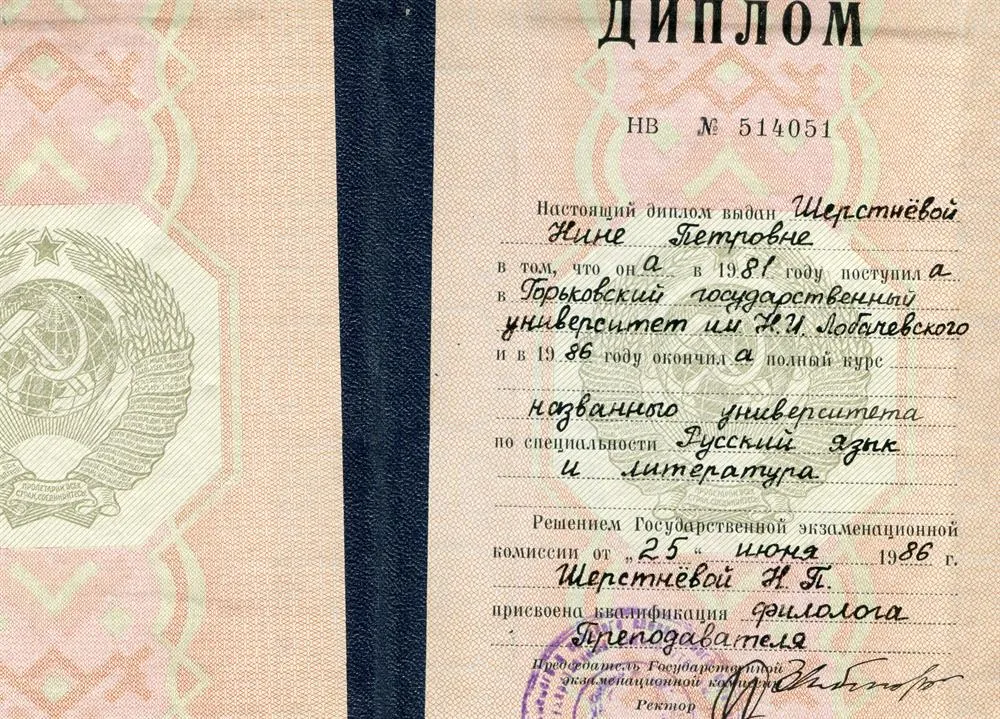 ПРОЛЕТАРИИ ВСЕХ
СТРАН, СОЕДИНЯЙТЕСЬ!
ДИПЛОМ
НВ № 514051
Настоящий диплом выдан Шерстнёвой
Нине Петровне
в том, что она в 1981 году поступила
в Горьковский государственный
университет им Н.И. Лобачевского
и в 1986 году окончила полный курс
названного университета
по специальности Русский язык
и литература
ПРОЛЕТАРИИ ВСЕХ
СТРАН, СОЕДИНЯЙТЕСЬ!
Решением Государственной экзаменационной
комиссии от „25“ июня 1986 г.
Шерстнёвой Н. П.
присвоена квалификация филолога
Преподавателя
Председатель Государственной
экзаменационной комиссии
Ректор